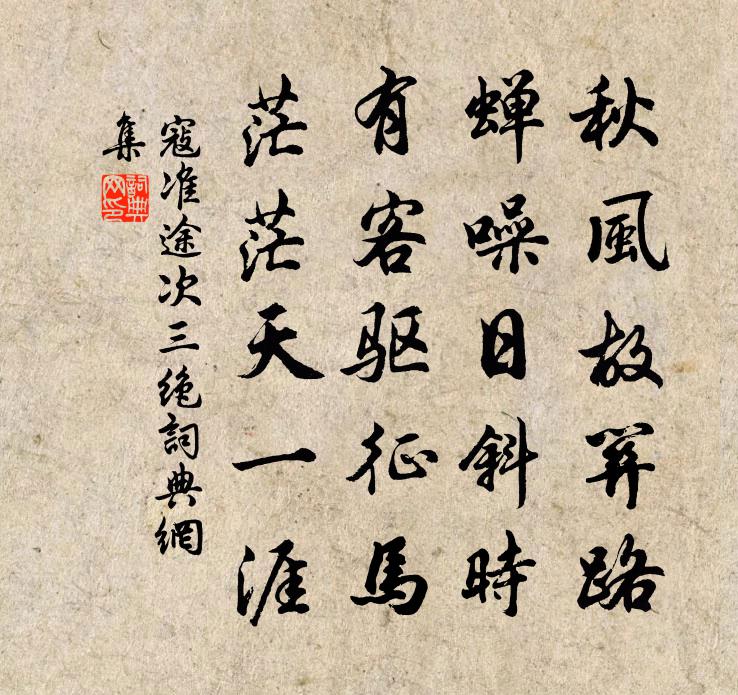 秋風故關路
蝉噪日斜時
有客驱征馬
茫茫天一涯
寇准途次三絶詞典網
集
詞典
网印